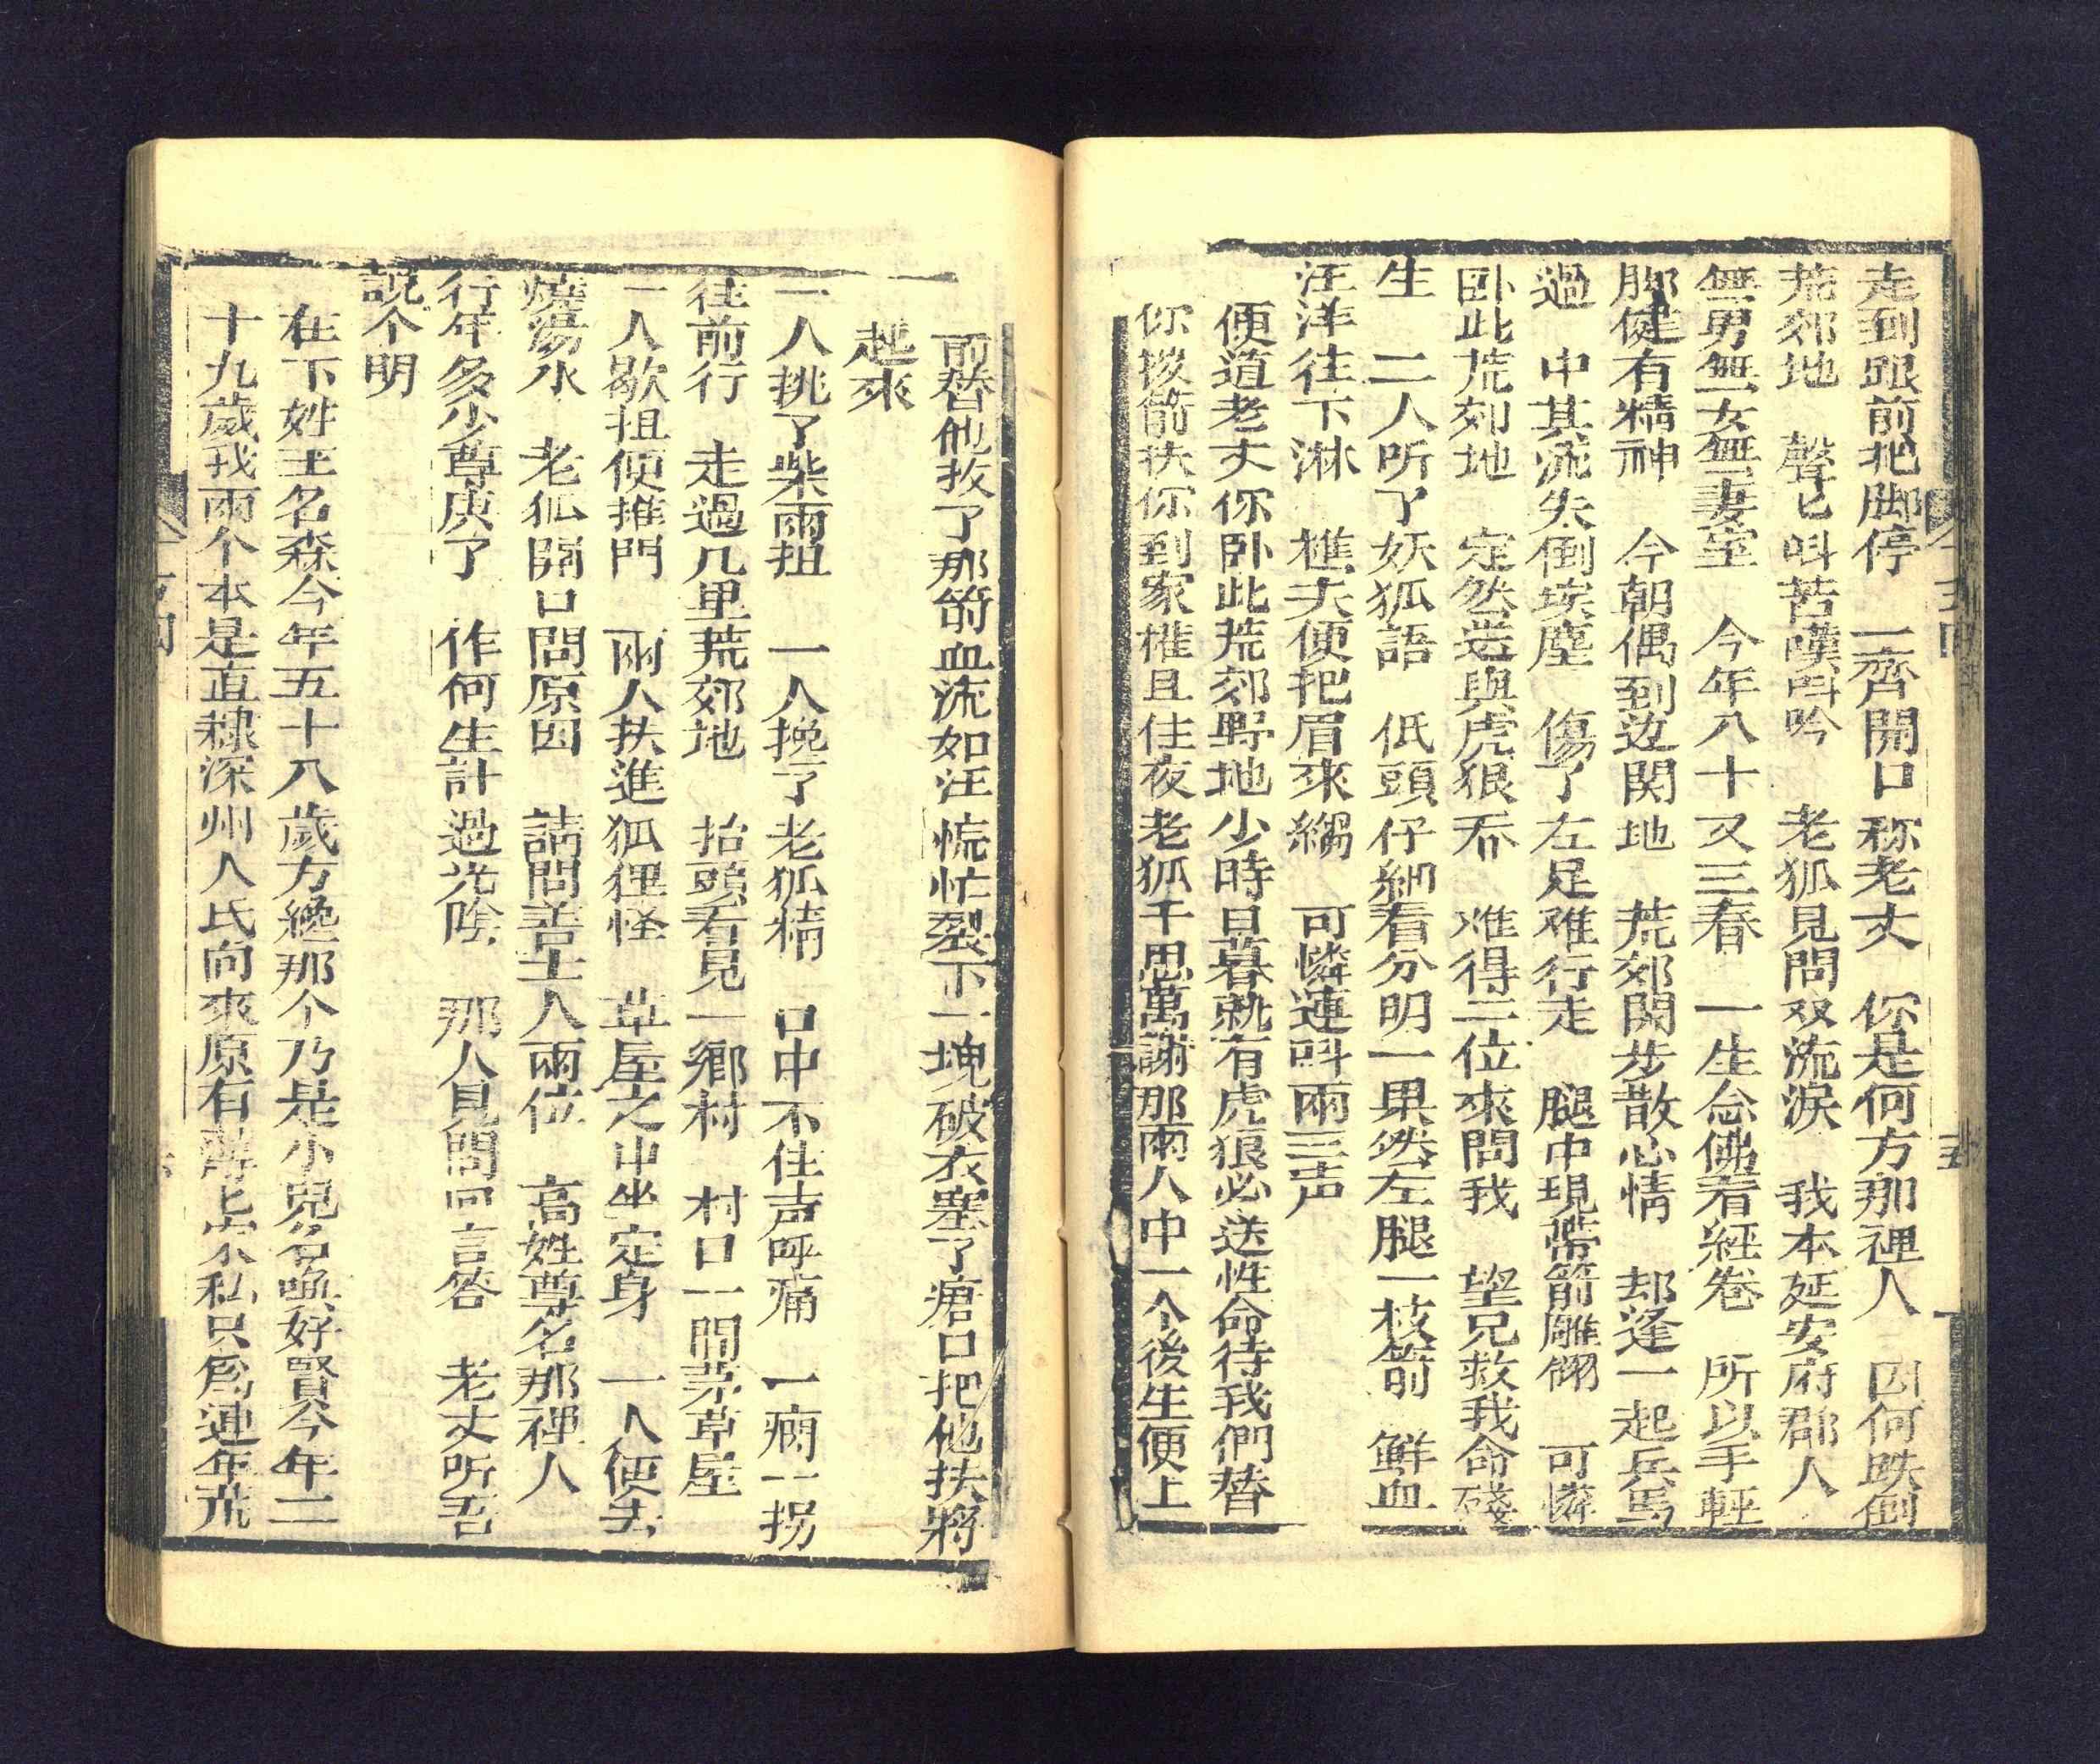 走到跟前把脚停　一齊開口称老丈　你是何方那裡人　因何跌倒
荒郊地　聲匕呌苦嘆呻吟　老狐見問双流淚　我本延安府郡人
無男無女無妻室　今年八十又三春　一生念佛看経卷　所以手輕
脚健有精神　今朝偶到边関地　荒郊閑步散心情　却逢一起兵馬
過　中其流矢倒埃塵　傷了左足难行走　腿中現帶箭雕翎　可憐
卧此荒郊地　定然送與虎狼吞　难得二位來問我　望兄救我命殘
生　二人听了妖狐語　低頭仔細看分明　果然左腿一枝箭　鮮血
汪洋往下淋　樵夫便把眉來縐　可憐連呌兩三声
便道老丈你卧此荒郊野地少時日暮就有虎狼必送性命待我們替
你拨箭扶你到家權且住夜老狐千恩萬謝那兩人中一个後生便上
前替他拔了那箭血流如注慌忙裂下一塊破衣塞了瘡口把他扶將
起來
一人挑了柴兩担　一人挽了老狐精　口中不住声呼痛　一瘸一拐
往前行　走過几里荒郊地　抬頭看見一鄉村　村口一間茅草屋
一人歇担便推門　兩人扶進狐狸怪　草屋之中坐定身　一人便去
燒湯水　老狐開口問原因　請問善士人兩位　高姓尊名那裡人
行年多少尊庚了　作何生計過光陰　那人見問回言答　老丈听吾
説个明
在下姓王名森今年五十八歲方纔那个乃是小兒名喚好賢今年二
十九歲我兩个本是直隸深州人氏向來原有薄匕家私只為連年荒